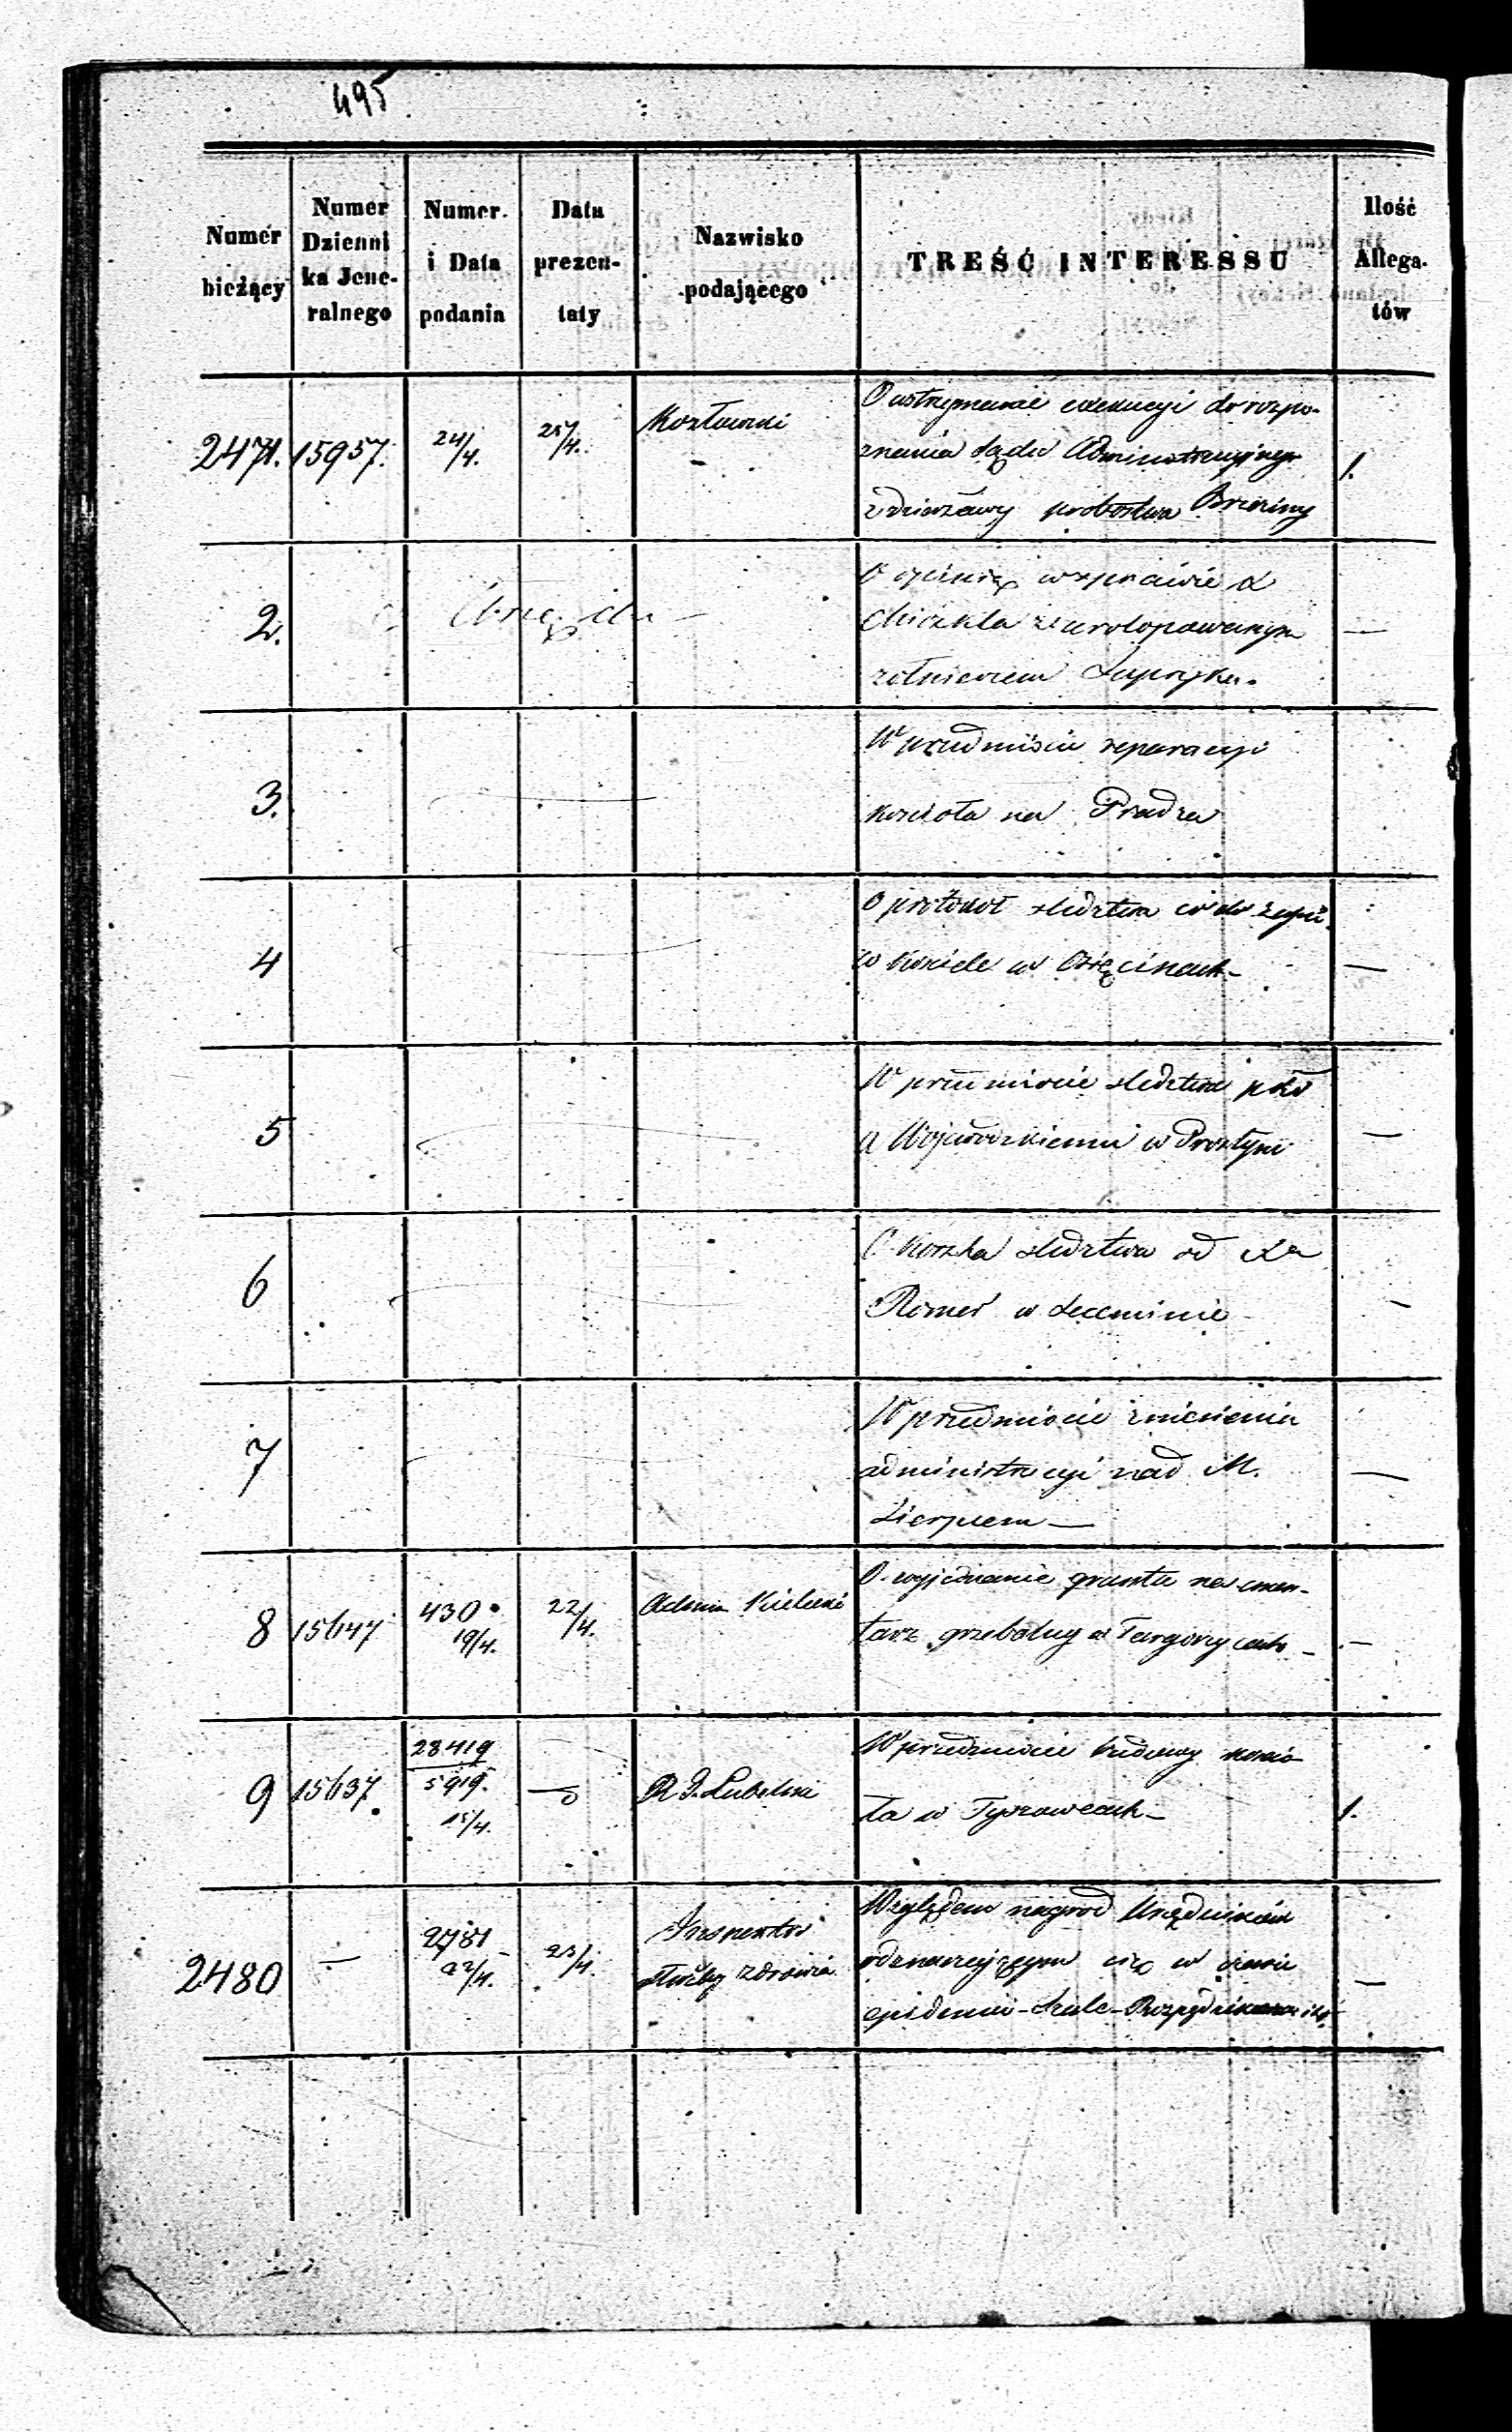 495
Numer bieżący
Numer Dzienni ka Jene- ralnego
Numer i Data podania
Data prezen- taty
Nazwisko podającego
TREŚĆ INTERESSU
Ilość Allega- tów
2471. 15957. 24/4. 25/4. Kozłowski
O wstrzymanie exekucyi do rozpo-
znania Sądu Administracyjnego
z dzierżawy probostwa Brzeziny
1.
2.
O opinię w sprawie X
żołnierzem
—
3.
W przedmiocie reparacyi
kościoła na Pradze
4
O protokół śledztwa co do
w kościele w Osięcinach —
—
5
W przedmiocie śledztwa pko
X Wojewódzkiemu w Prostyni
—
6
O koszta śledztwa od Xa
w
—
7
W przedmiocie zniesienia
administracyi nad M.
Sierpcem —
—
8 15647 430 19/4. 22/4. Admin Kielecki
O wyjednanie gruntu na cmen-
tarz grzebalny w Targoszycach —
—
9 15637 28419/5919. 15/4. R. G. Lubelski
W przedmiocie budowy kościo
ła w Tyszowcach —
1.
2480 — 2781 22/4. 23/4. Inspektor
służby zdrowia
Względem nagród Urzędników
odznaczającym się w czasie
epidemii —
—